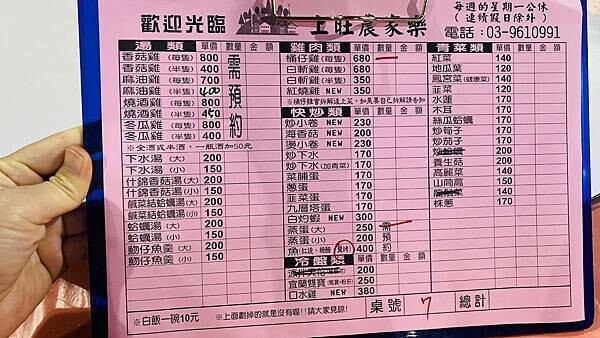 每週的星期一公休
(連續假日除外)
歡迎光臨 上旺農家樂 電話:03-9610991
湯類 單價 數量 金額
香菇雞(每隻) 800 需預約
香菇雞(半隻) 400
麻油雞(每隻) 700
麻油雞(半隻) 400
燒酒雞(每隻) 800
燒酒雞(半隻) 450
冬瓜雞(每隻) 800
冬瓜雞(半隻) 400
※全酒或半酒,一瓶酒加50元
下水湯(大) 200
下水湯(小) 150
什錦香菇湯(大) 200
什錦香菇湯(小) 150
鹹菜結蛤蠣湯(大) 200
鹹菜結蛤蠣湯(小) 150
蛤蠣湯(大) 200
蛤蠣湯(小) 150
魩仔魚羹(大) 200
魩仔魚羹(小) 150
雞肉類 單價 數量 金額
桶仔雞(每隻) 680 一
白斬雞(每隻) 680
白斬雞(半隻) 350
紅燒雞 NEW 350
※桶仔雞會拆解送上菜,如果要自己拆解請告知
快炒類 單價 數量 金額
炒小卷 NEW 230
海香菇 NEW 200
燙小卷 NEW 230
炒下水 170
炒下水(加青菜) 170
菜脯蛋 170
蔥蛋 170
韭菜蛋 170
九層塔蛋 170
白灼蝦 NEW 300
蒸蛋(大) 250 需預約
蒸蛋(小) 200
魚(紅燒、糖醋、鹽烤) 400
冷盤類 單價 數量 金額
200
宜蘭雙寶(鴨賞・粉肝) 250
口水雞 NEW 380
青菜類 單價 數量 金額
紅菜 140
地瓜葉 120
鳳宮菜(健康菜) 140
韭菜 120
水蓮 140
木耳 170
絲瓜蛤蠣 170
炒筍子 170
炒茄子 170
炒蛤蠣 200
養生菇 200
高麗菜 140
山筒蒿 150
龍鬚菜 140
株蔥 170
※白飯一碗10元 ※上面劃掉的就是沒有喔!!請大家見諒! 桌號 7 總計